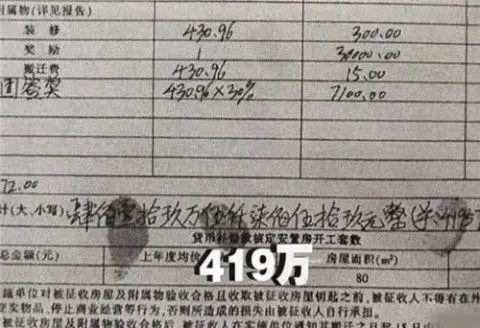 附属物(详见报告)
装修 430.96 300.00
奖励 1 30000.00
搬迁费 430.96 15.00
团签奖 430.96×30% 7100.00
72.00
计(大、小写) 肆佰壹拾玖万伍仟柒佰伍拾玖元整
货币补偿款核定安置房开工套数
总金额(元) 上年度均价 房屋面积(m²)
419万
80
施单位对被征收房屋及附属物验收合格且收取被征收房屋钥匙之前,被征收人不得有在外
变实物品,停止商业经营等行为,否则所造成的损失由被征收人自行承担。
被征收房屋及附属物验收合格后,被征收人在实施单位通知其搬迁之日起15日